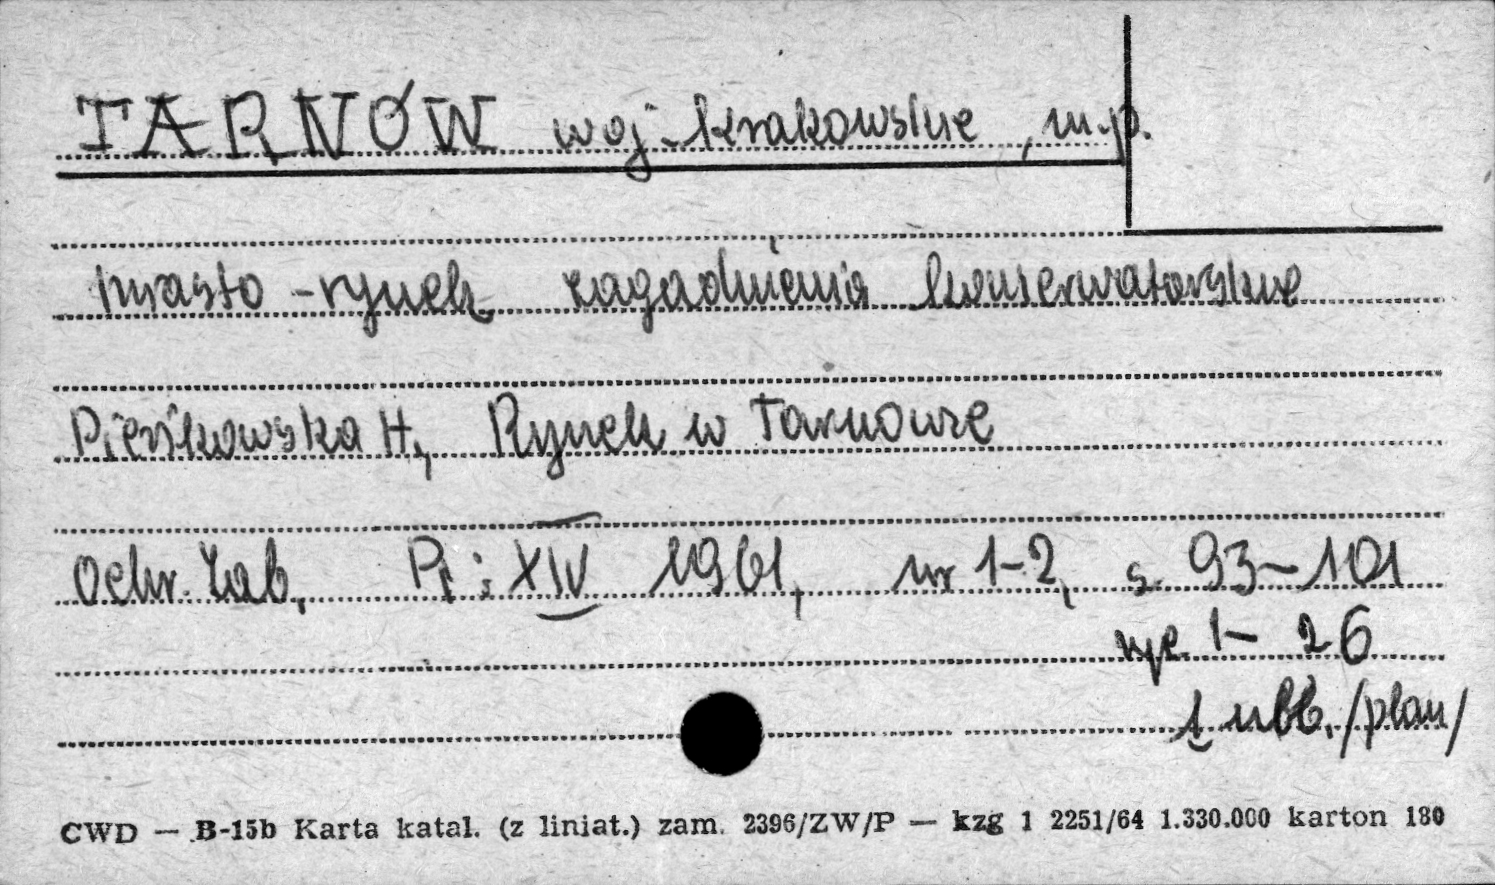 TARNÓW woj. krakowskie, m.p.
miasto - rynek zagadnienia konserwatorskie
Pieńkowska H., Rynek w Tarnowie
Ochr. Zab., R: XIV 1961, nr 1-2, s. 93-101
ryc. 1-26
1 nlb. /plan/
CWD — B-15b Karta katal. (z liniat.) zam. 2396/ZW/P — kzg 1 2251/64 1.330.000 karton 180